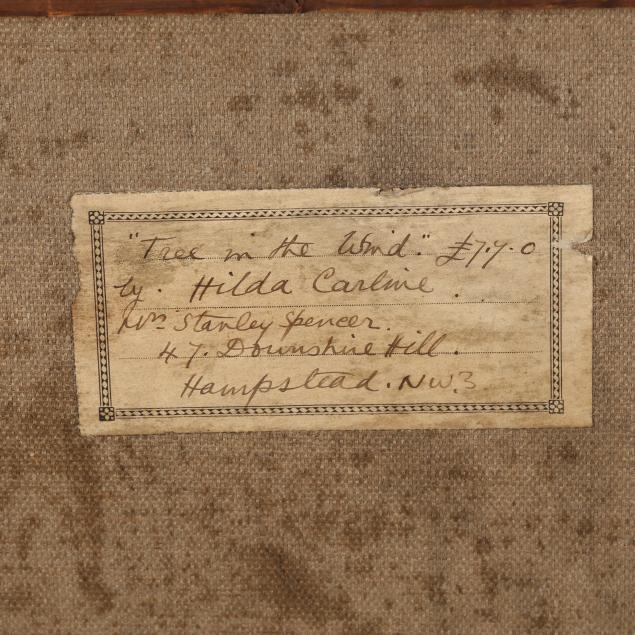 "Tree in the Wind." £7.7.0
by. Hilda Carline.
Mrs Stanley Spencer.
47. Downshire Hill.
Hampstead. N.W.3